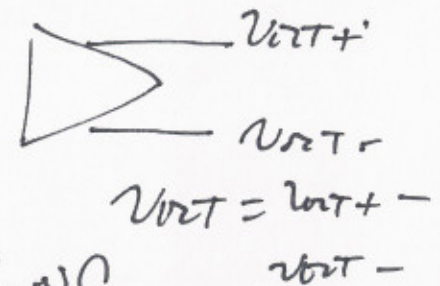 VOUT+
VOUT-
VOUT = VOUT+ -
VOUT -